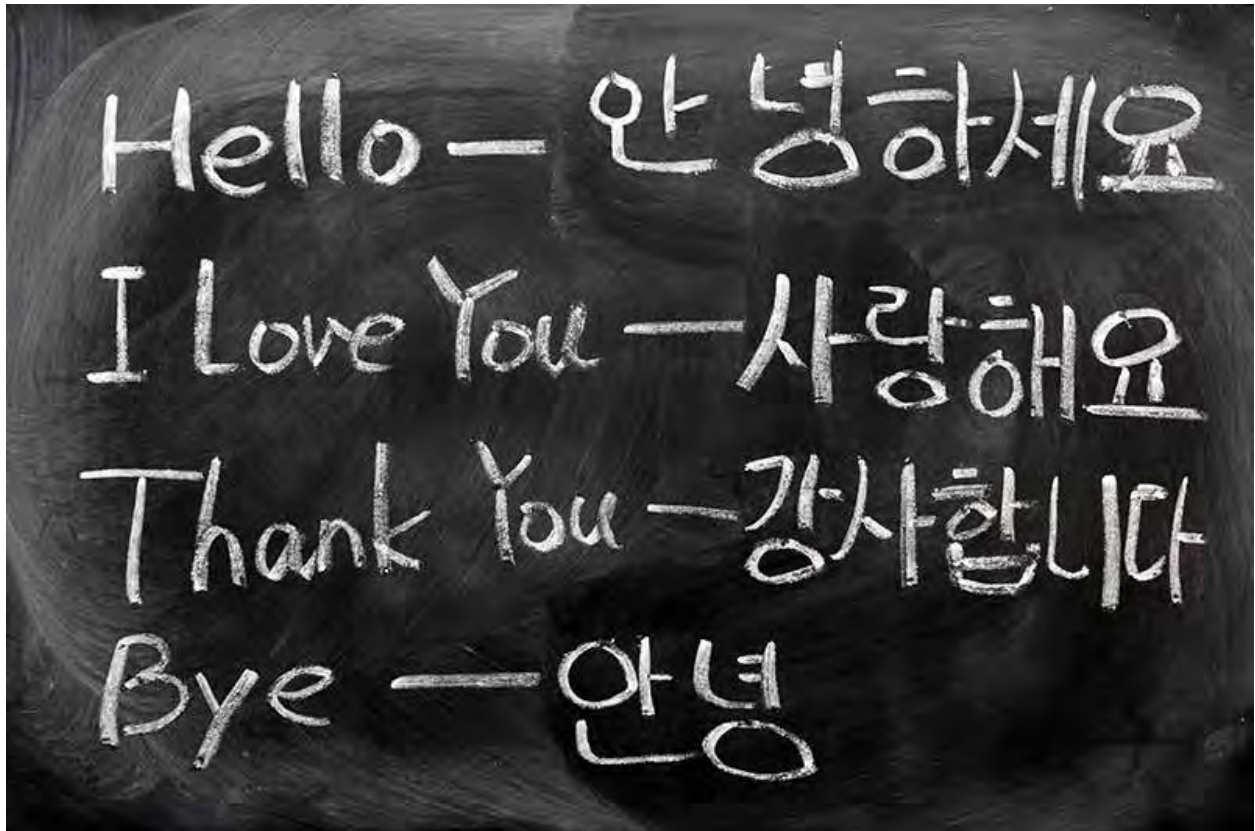 Hello — 안녕하세요
I Love You — 사랑해요
Thank You — 강사합니다
Bye — 안녕